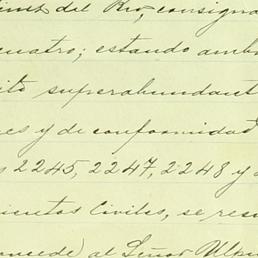 del Rio, consigna
cuatro; estando amb
superabundant
es y de conformidad
2245, 2247, 2248 y
ientos Civiles, se res
oncede) al Señor Ulpi